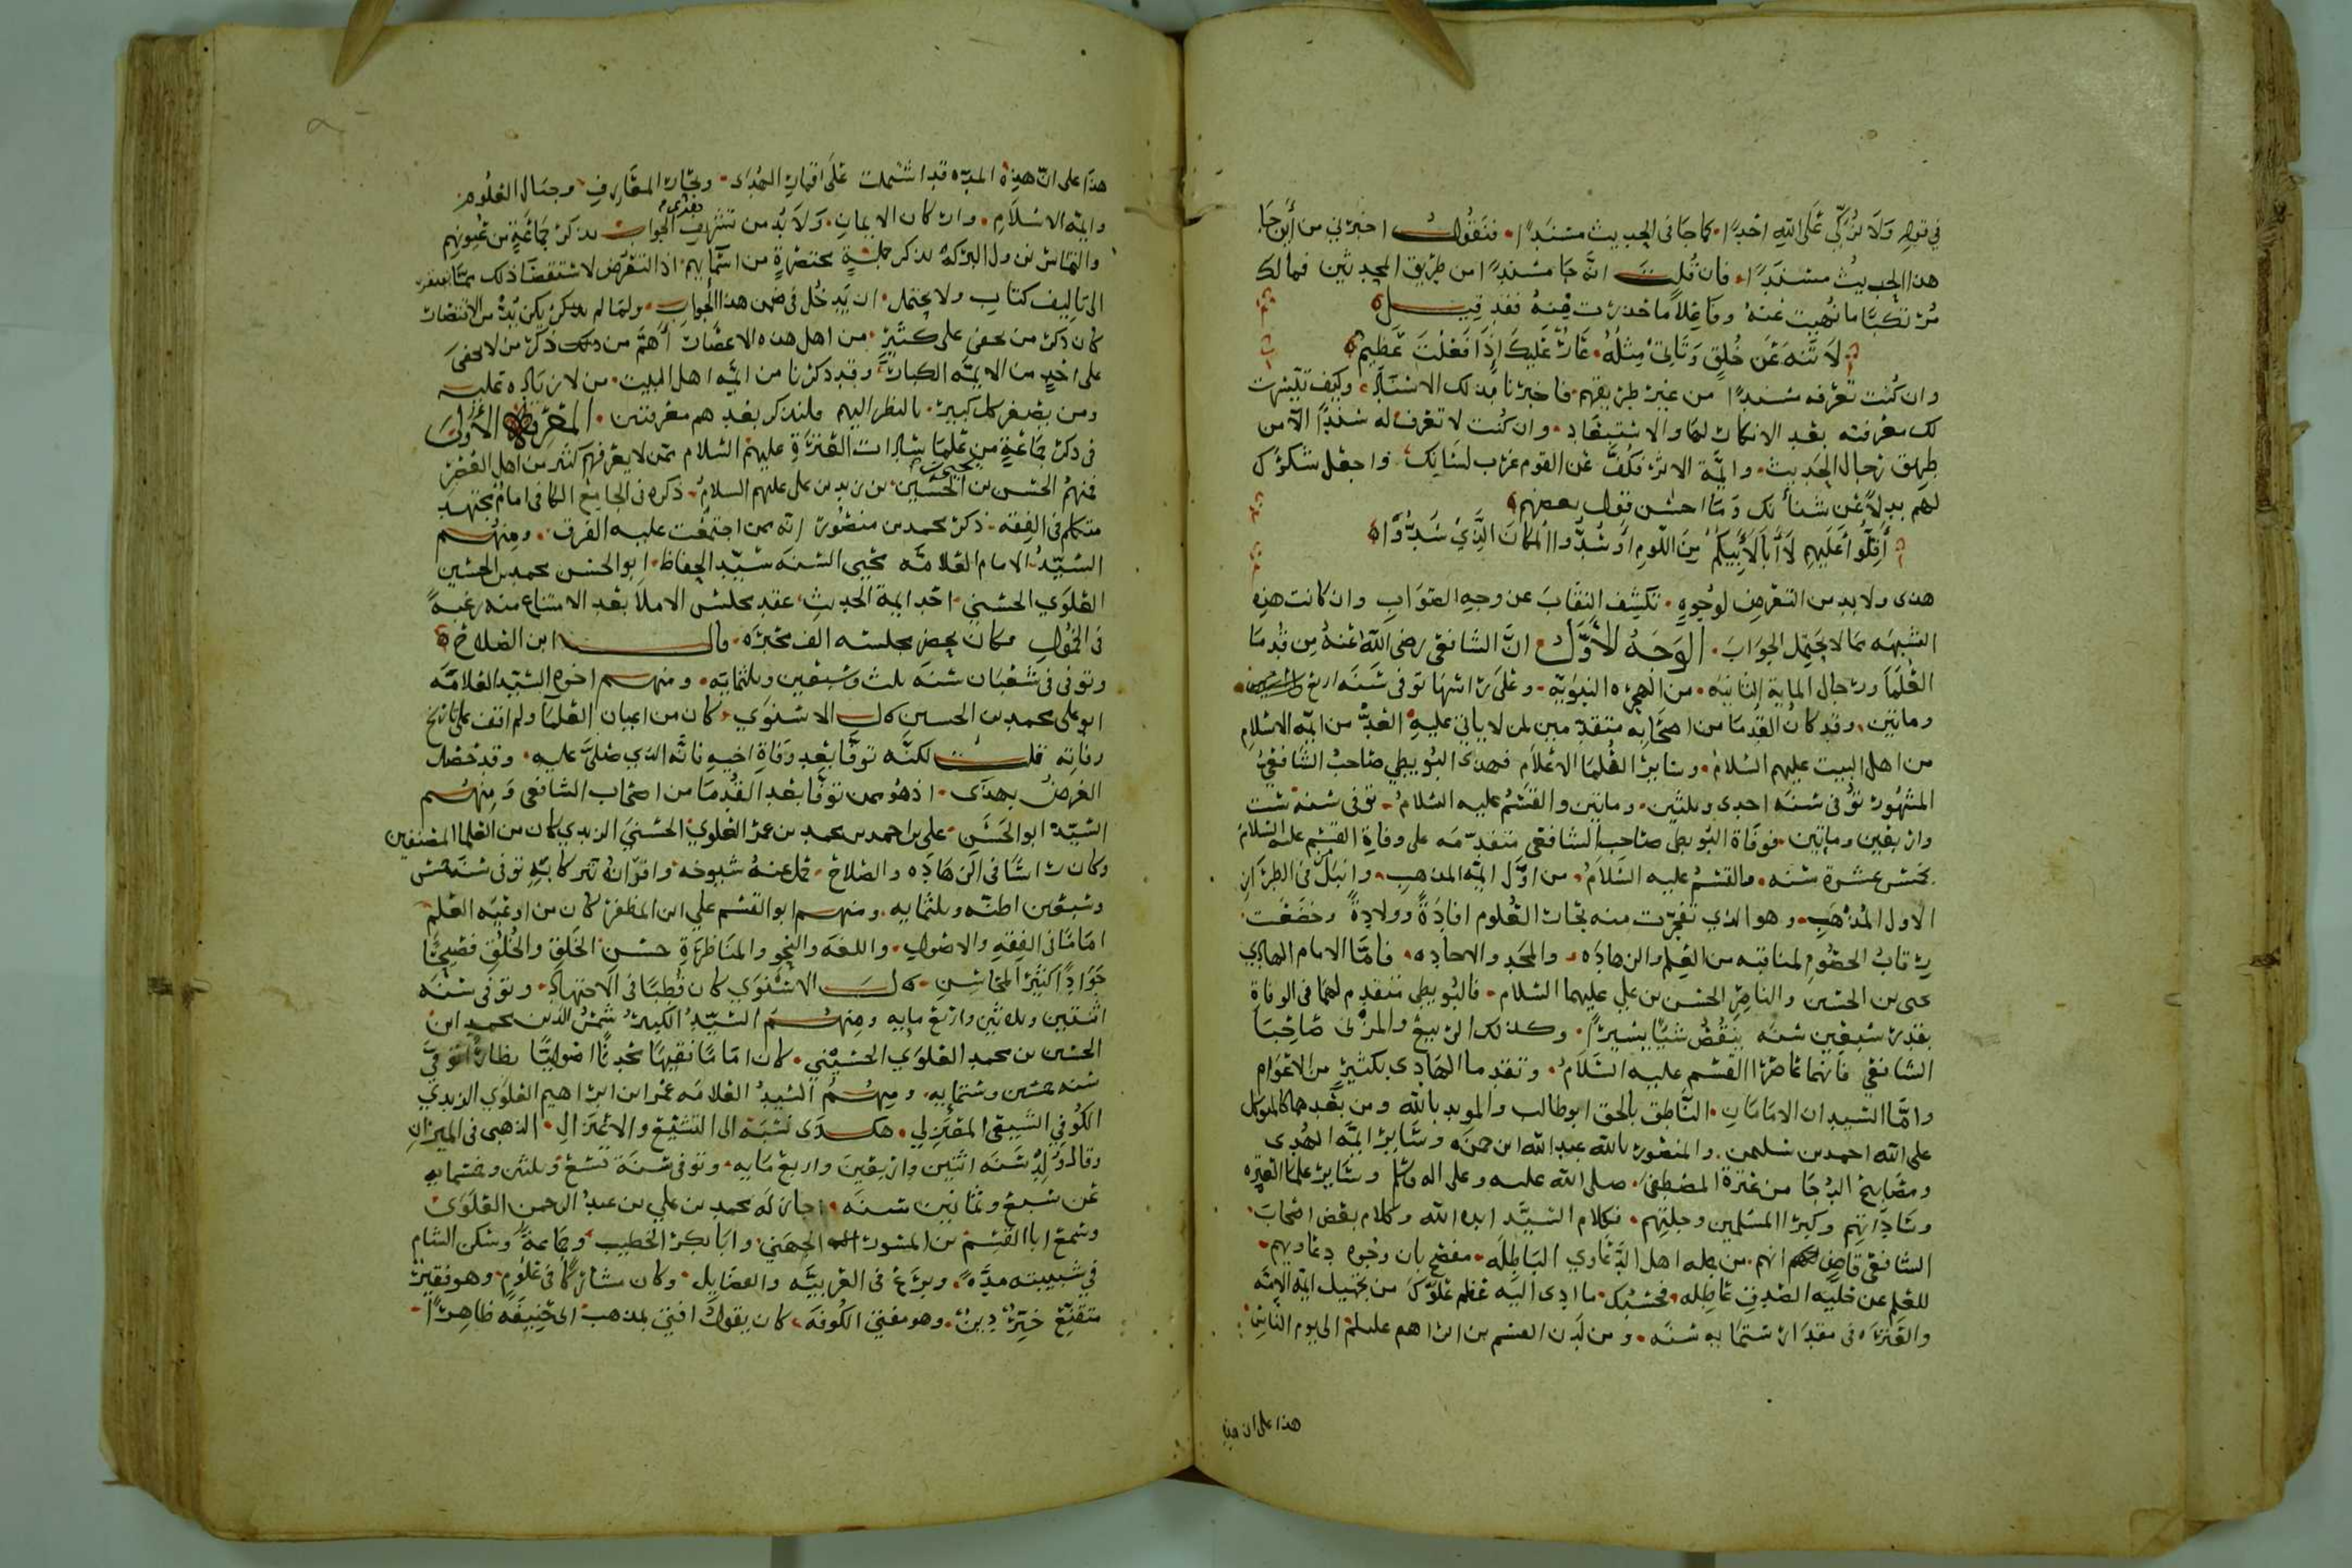 في قوله ولا تزكي على الله احدًا. كما جا في الحديث مسندًا. فنقول اخبرني من أين جا
هذا الحديث مسندًا. فان قلت انه جا مسندًا من طريق المحدثين فما لك
مرتكبا ما نهيت عنه وفاعلا ما حذرت منه فقد قيل
لا تنه عن خلق وتأتي مثله. عار عليك إذا فعلت عظيم
وان كنت تعرفه مسندًا من غير طريقهم. فاخبرنا بذلك الاسناد، وكيف تيسرت
لك معرفته بعد الانكار لها والاستبعاد. وان كنت لا تعرف له سندًا الا من
طريق رجال الحديث. وايمة الاثر، فكف عن القوم غرب لسانك، واجعل شكرك
لهم بدلاً عن شنأنك وما احسن قول بعضهم
أقلوا عليهم لا أبا لأبيكم من اللوم أو سدوا المكان الذي سدوا
هذى ولا بد من التعرض لوجوه. تكشف النقاب عن وجه الصواب وان كانت هذه
الشبهه مما لا يحتمل الجواب. الوجه الأول ان الشافعى رضى الله عنه من قدما
العلما ورجال الماية الثانيه. من الهجره النبويه. وعلى راسها توفى سنه اربع
وماتين. وقد كان القدما من اصحابه متقدمين لمن لا ياتي عليه العد من ايمه الاسلام
من اهل البيت عليهم السلام. وساير العلما الاعلام فهذى البويطي صاحب الشافعي
المشهور توفى سنه احدى وثلثين. وماتين والقسم عليه السلام. توفى سنة ست
واربعين وماتين. فوفاة البويطى صاحب الشافعى متقدمه على وفاة القسم عليه السلام
بخمس عشرة سنه. والقسم عليه السلام. من اول ايمة المذهب.
الاول المذهب. وهو الذي تفجرت منه بحار العلوم افادة وولادة وخضعت
رقاب الخصوم لمناقبه من العلم والزهاده، والمجد والاجاده. فامّا الامام الهادي
يحيى بن الحسين والناصر الحسن بن علي عليهما السلام. فالبويطى متقدم لهما فى الوفاة
بقدر سبعين سنه ينقص شيًا يسيرًا. وكذلك الربيع والمزنى صاحبا
الشافعي فانهما عاصرا القسم عليه السلام. وتقدما الهادي بكثير من الاعوام
وامّا السيدان الامامان. الناطق بالحق ابو طالب والمويد بالله ومن بعدهما كالمتوكل
على الله احمد بن سليمن. والمنصور بالله عبد الله ابن حمزه وساير ايمه الهدى
ومصابيح الدجا من عترة المصطفى. صلى الله عليه وعلى اله وسلم وساير علما العتره
وساداتهم وكبرا المسلمين وجلتهم. فكلام السيد ايده الله وكلام بعض اصحاب
الشافعي قاض انهم. من جمله اهل الدعاوي الباطله. مفصح بان وجوه دعاويهم.
للعلم عن حليه الصدق عاطله. فحسبك ما ادى اليه عظم غلوك من تجهيل ايمه الامه
والعتره فى مقدار ستمايه سنه. ومن لدن القسم بن ابراهيم عليلم الى يوم الناس
هذا على ان هذه
هذا على ان هذه المده قد اشتملت على اقمار الهدى. وبحار المعارف وجبال العلوم.
وايمه الاسلام. واركان الايمان. ولا بد من تشريف الجواب بذكر جماعة من عيونهم
والتماس نزول البركة بذكر جملة مختصرة من اسمايهم. اذ التعرض لاستقصا ذلك مما يفتقر
الى تاليف كتاب ولا يحتمل. ان يدخل في ضمن هذا الجواب. ولما لم يكن بد من الاقتصار
كان ذكر من يخفى على كثير. من اهل هذه الاعصار أهم من ذكر من لا يخفى
على احد من الايمه الكبار، وقد ذكرنا من ايمه اهل البيت. من لا زياده عليه
ومن يصغر كل كبير. بالنظر اليهم فلنذكر بعدهم معرفتين. المعرفه الأولى
فى ذكر جماعة من علما سادات العترة عليهم السلام ممن لا يعرفهم كثير من اهل العصر
فمنهم الحسن بن يحيى بن الحسين بن زيد بن على عليهم السلام. ذكره فى الجامع الكافى امام مجتهد
متكلم فى الفقه. ذكر محمد بن منصور انه ممن اجتمعت عليه الفرق. ومنهم
السيد الامام العلامه محيى السنه سيد الحفاظ. ابو الحسن محمد بن الحسين
العلوي الحسني. احد ايمة الحديث، عقد مجلس الاملا بعد الامتناع منه رغبةً
فى الخمول فكان يحضر مجلسه الف محبره. قاله ابن الصلاح
وتوفى فى شعبان سنه ثلث وسبعين وثلثمايه. ومنهم اخوه السيد العلامه
ابو على محمد بن الحسين قال الاسنوي. كان من اعيان العلما ولم اقف على تاريخ
وفاته قلت لكنه توفا بعد وفاة اخيه فانه الذي صلى عليه. وقد حصل
الغرض بهذى. اذ هو ممن توفا بعد القدما من اصحاب الشافعى ومنهم
السيد ابو الحسن. علي بن احمد بن محمد بن عمر العلوي الحسني الزيدي كان من العلما المصنفين
وكان راسًا فى الزهاده والصلاح. نقل عنه شيوخه واقرانه تبركا به توفى سنه خمس
وسبعين اظنه وثلثمايه. ومنهم ابو القسم علي ابن المظفر كان من اوعيه العلم
امامًا فى الفقه والاصول. واللغه والنحو والمناظرة حسن الخلق والخلق فصيحًا
جوادًا كثير المحاسن. قال الاسنوي كان قطبًا فى الاجتهاد. وتوفى سنه
اثنتين وثلاثين واربع مايه ومنهم السيد الكبير شمس الدين محمد ابن
الحسين بن محمد العلوي الحسيني. كان امامًا فقيهًا محدثًا اصوليًا نظارًا توفي
سنه خمسين وستمايه. ومنهم السيد العلامه عمر ابن ابراهيم العلوي الزيدي
الكوفي الشيعى المعتزلي. هكذى نسبه الى التشيع والاعتزال. الذهبى فى الميزان
وقال ولد سنه اثنين واربعين واربع مايه. وتوفى سنة تسع وثلثين وخمسمايه
عن سبع وثمانين سنه. اجاز له محمد بن علي بن عبد الرحمن العلوي
وسمع ابا القسم بن المنثور الجهني. وابا بكر الخطيب، وجماعة وسكن الشام
في شبيبته مدّه. وبرع فى العربيه والفضايل. وكان مشاركًا فى علوم. وهو فقير
متقنع خيّر دين. وهو مفتي الكوفه، كان يقول افتى بمذهب ابى حنيفه ظاهرًا.